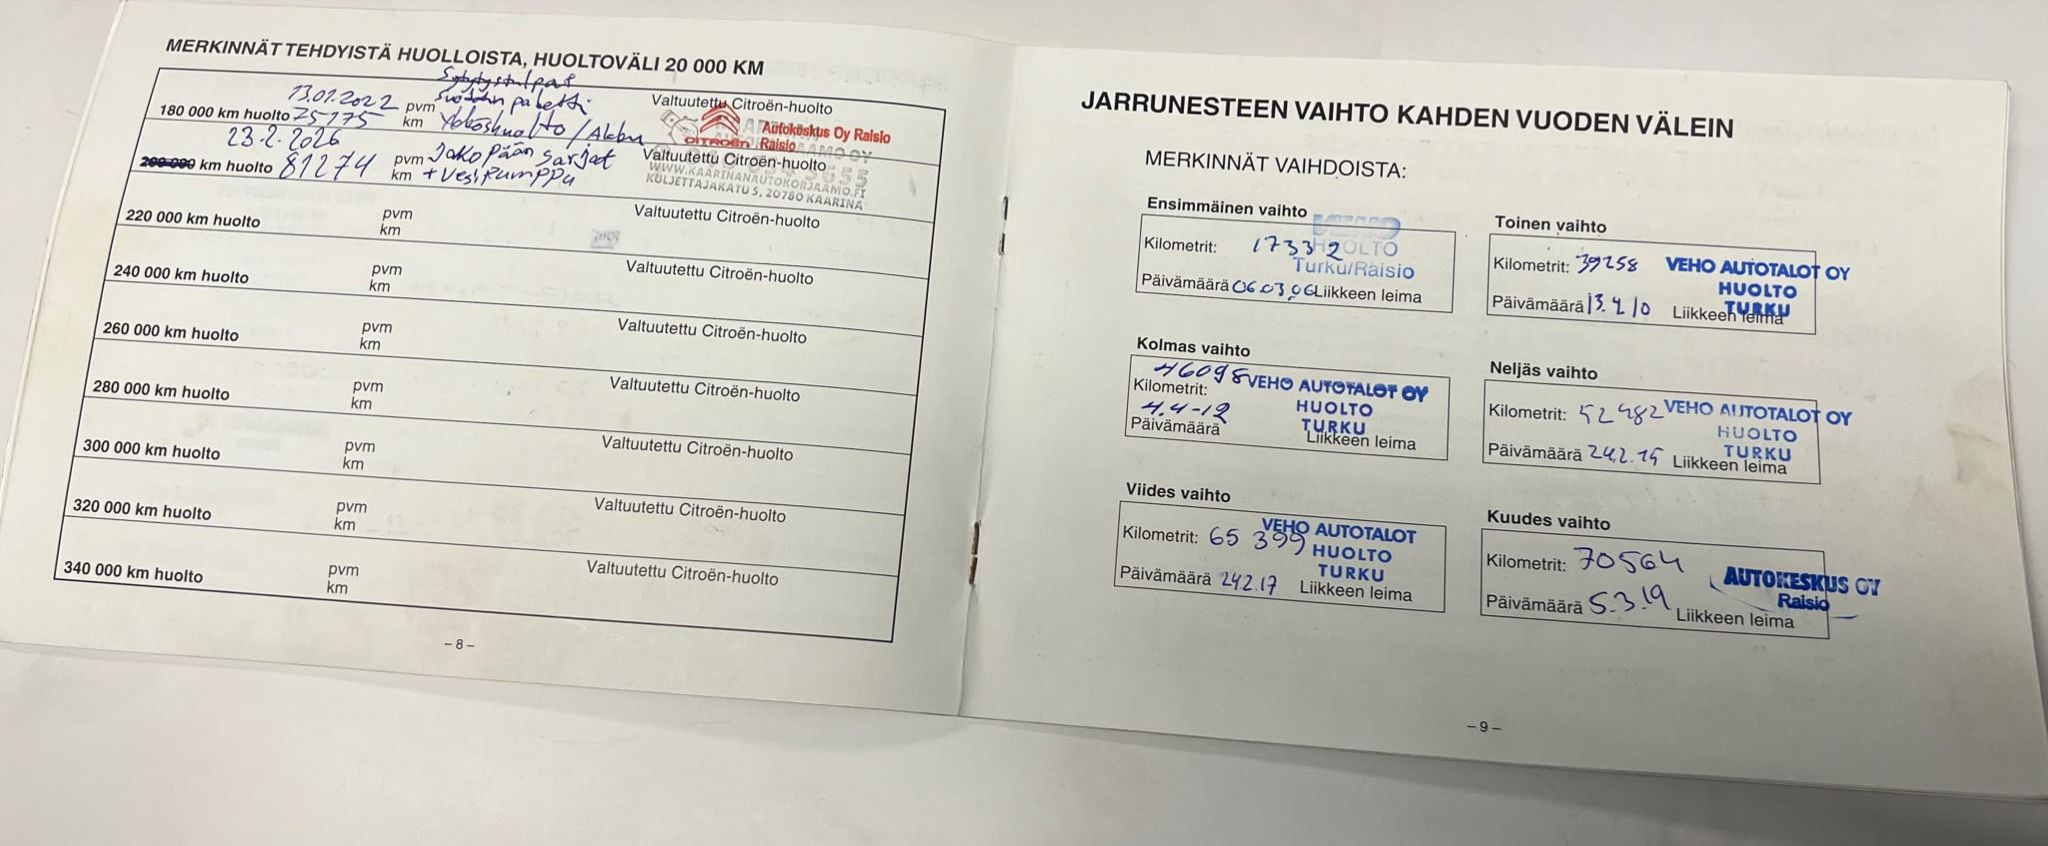 MERKINNÄT TEHDYISTÄ HUOLLOISTA, HUOLTOVÄLI 20 000 KM
Sytytystulpat
13.01.2022 pvm Suodatinpaketti Valtuutettu Citroën-huolto
180 000 km huolto 75175 km Yokoshuolto/Akku
CITROËN Autokeskus Oy Raisio
Raisio
23.2.2026 pvm Jakopään sarjat Valtuutettu Citroën-huolto
200 000 km huolto 81274 km + vesipumppu
WWW.KAARINANAUTOKORJAAMO.FI
KULJETTAJAKATU 5, 20780 KAARINA
220 000 km huolto pvm Valtuutettu Citroën-huolto
km
240 000 km huolto pvm Valtuutettu Citroën-huolto
km
260 000 km huolto pvm Valtuutettu Citroën-huolto
km
280 000 km huolto pvm Valtuutettu Citroën-huolto
km
300 000 km huolto pvm Valtuutettu Citroën-huolto
km
320 000 km huolto pvm Valtuutettu Citroën-huolto
km
340 000 km huolto pvm Valtuutettu Citroën-huolto
km
– 8 –
JARRUNESTEEN VAIHTO KAHDEN VUODEN VÄLEIN
MERKINNÄT VAIHDOISTA:
Ensimmäinen vaihto
VEHO
Kilometrit: 17332 HUOLTO
Turku/Raisio
Päivämäärä 06.03.06 Liikkeen leima
Toinen vaihto
Kilometrit: 39258 VEHO AUTOTALOT OY
HUOLTO
TURKU
Päivämäärä 13.4.10 Liikkeen leima
Kolmas vaihto
46098 VEHO AUTOTALOT OY
Kilometrit: HUOLTO
4.4-12 TURKU
Päivämäärä Liikkeen leima
Neljäs vaihto
Kilometrit: 52482 VEHO AUTOTALOT OY
HUOLTO
TURKU
Päivämäärä 24.2.15 Liikkeen leima
Viides vaihto
Kilometrit: 65 399 VEHO AUTOTALOT
HUOLTO
TURKU
Päivämäärä 24.2.17 Liikkeen leima
Kuudes vaihto
Kilometrit: 70564
AUTOKESKUS OY
Raisio
Päivämäärä 5.3.19 Liikkeen leima
– 9 –